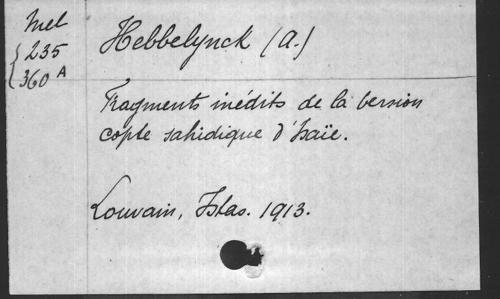 Mel
235
360 A
Hebbelynck (A.)
Fragments inédits de la version
copte sahidique d'Isaïe.
Louvain, Istas. 1913.